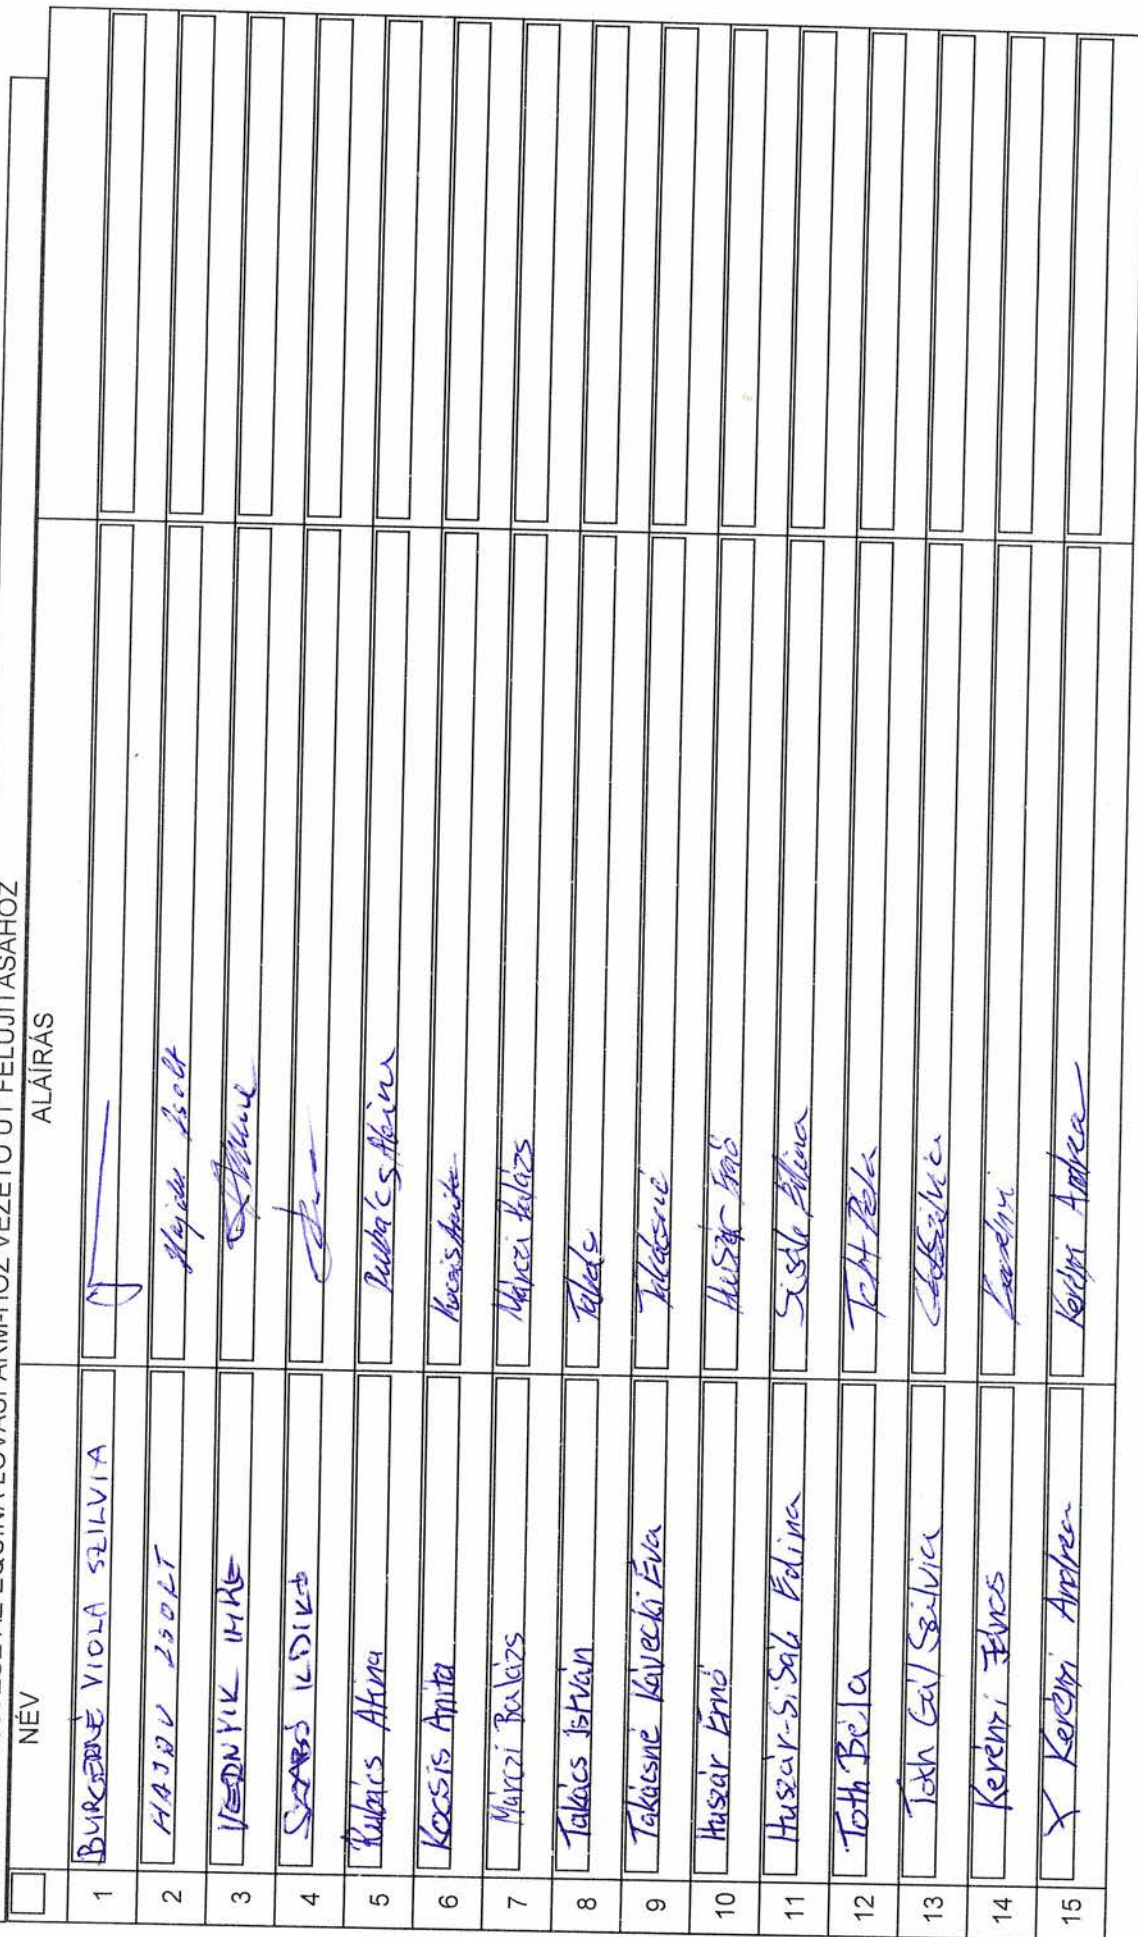 EQUINA LOVASFARM-HOZ VEZETŐ ÚT FELÚJÍTÁSÁHOZ
NÉV ALÁÍRÁS
1 BURGERNÉ VIOLA SZILVIA
2 HAJDU ZSOLT Hajdu Zsolt
3 VEDNYIK IMRE
4 SZABÓ ILDIKÓ
5 Rubács Akina
6 Kocsis Anita Kocsis Anita
7 Márczi Balázs Márczi Balázs
8 Takács István Takács
9 Takácsné Kávecki Éva Takácsné
10 Huszár Ernő Huszár Ernő
11 Huszár-Sisák Edina Sisák Edina
12 Toth Béla Toth Béla
13 Toth Gál Szilvia
14 Kerényi János Kerényi
15 X Kerényi Andrea Kerényi Andrea